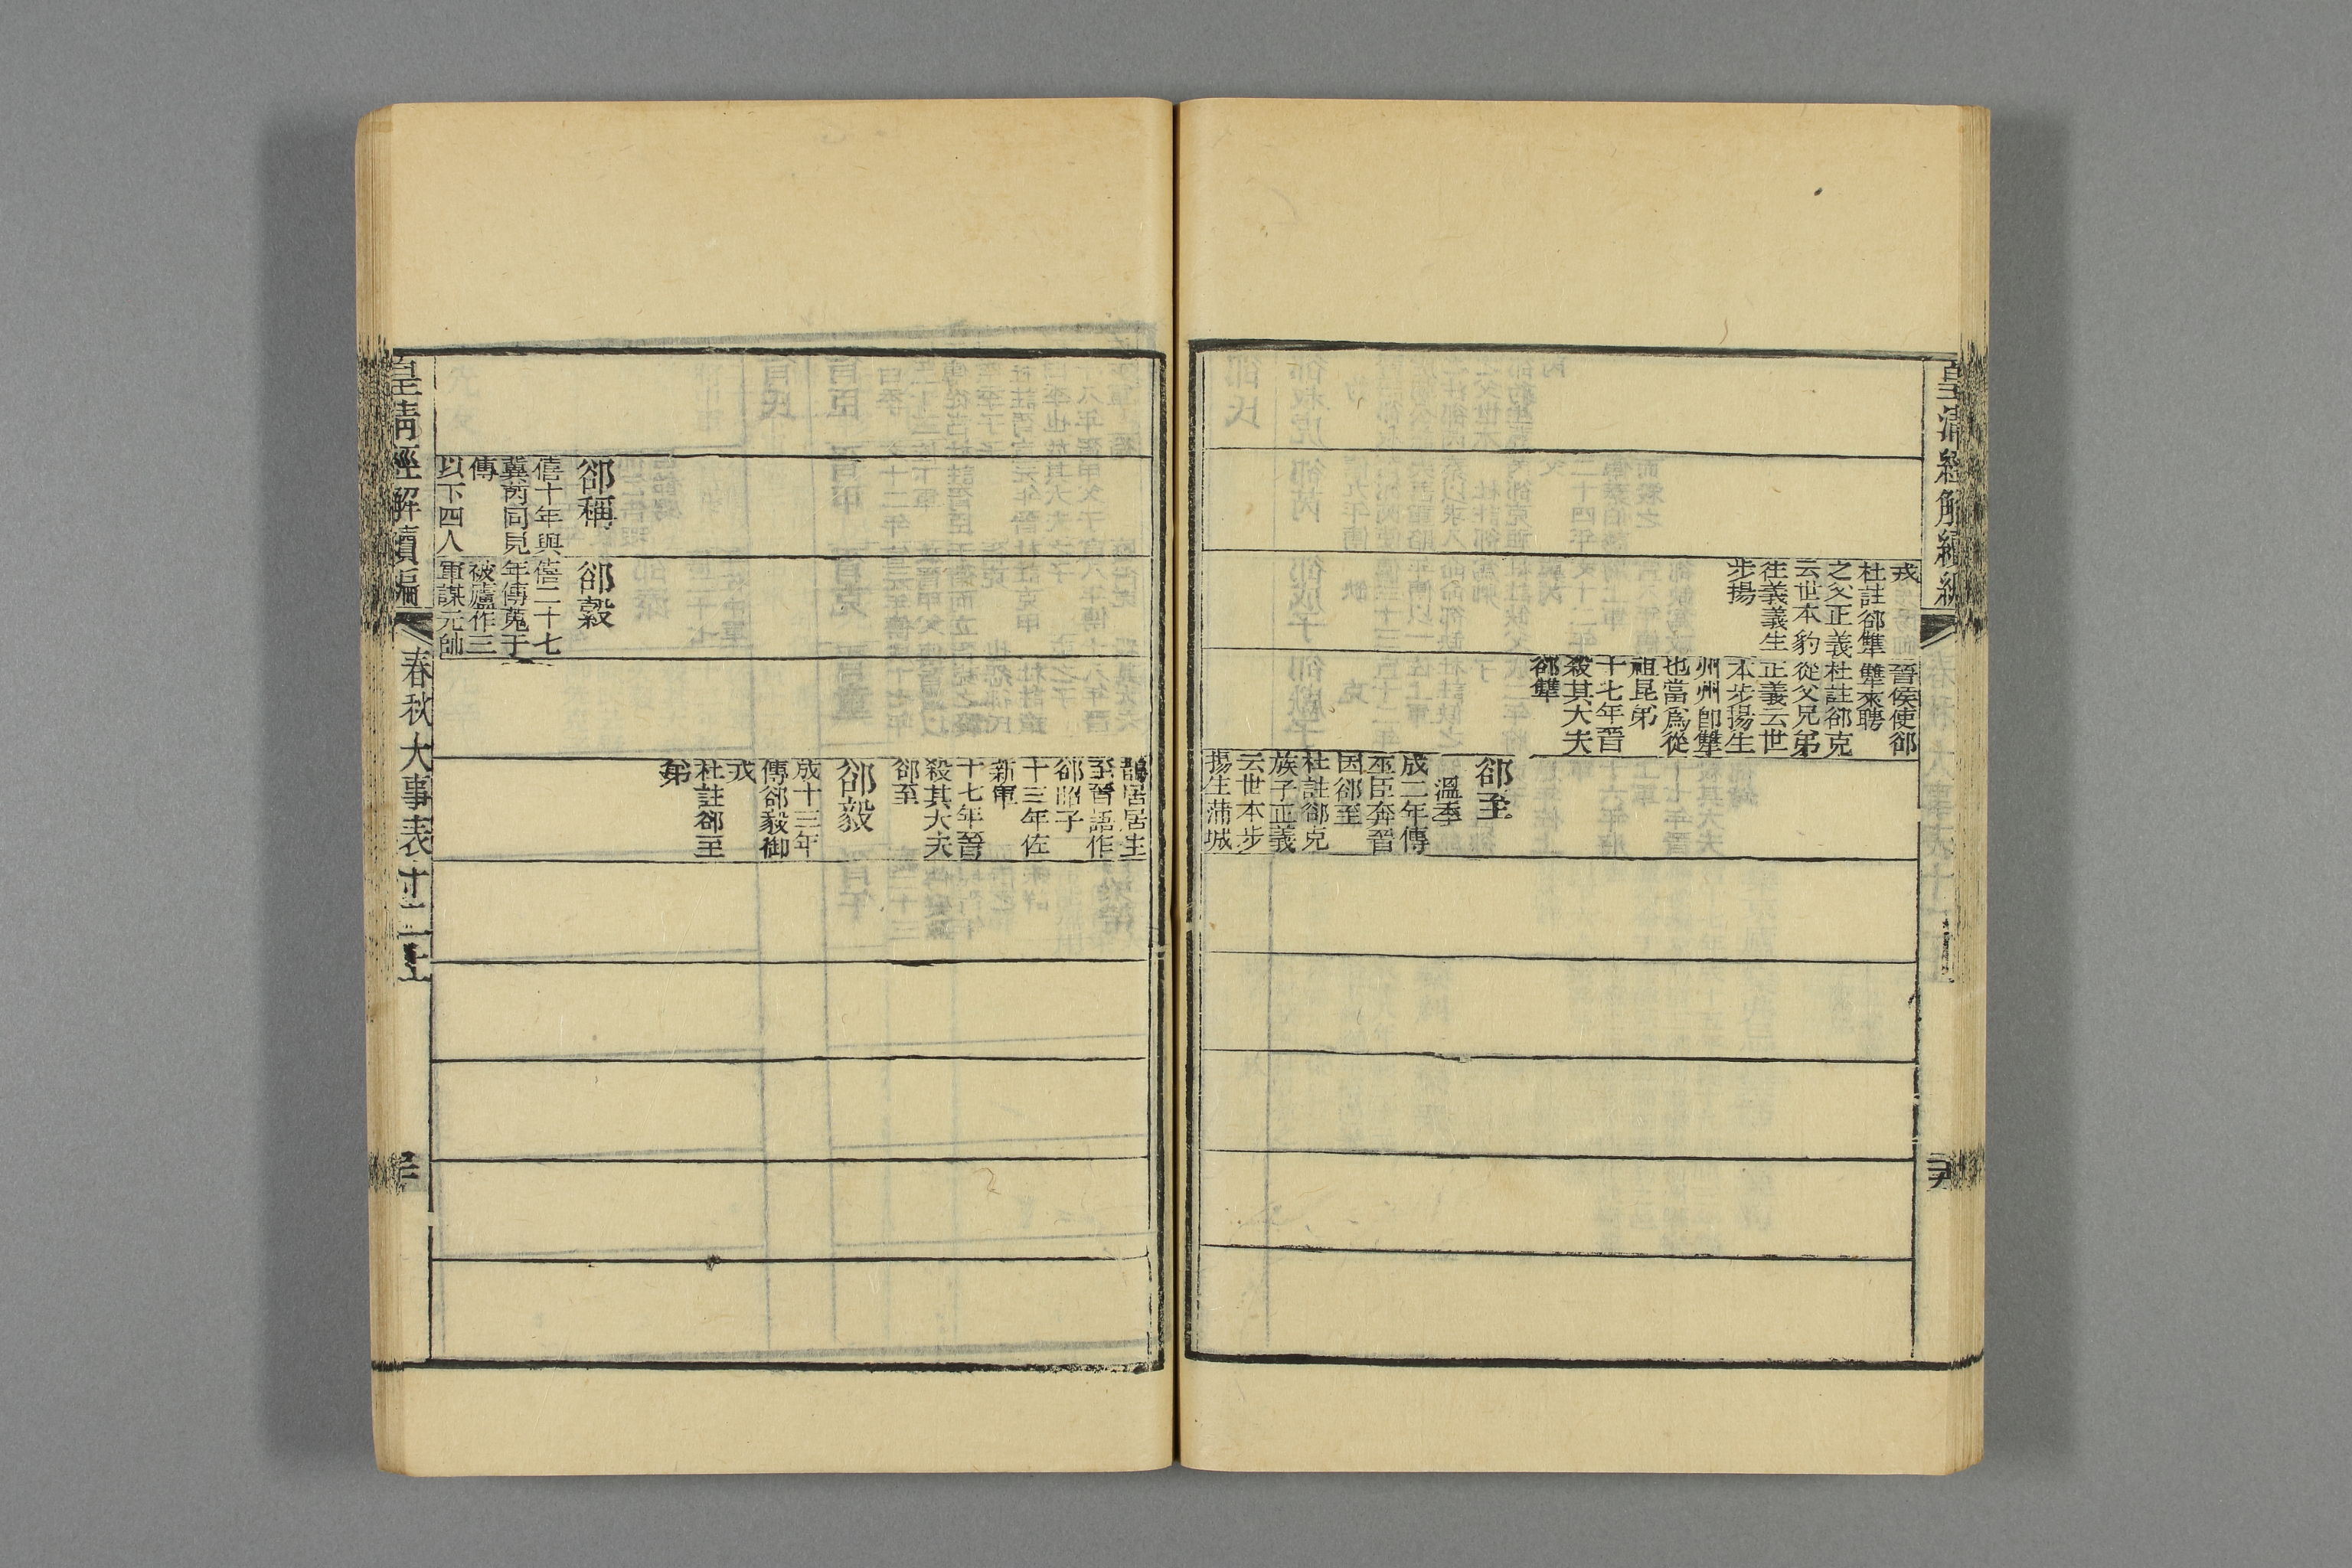 皇清經解續編
戎
杜註郤犫
之父正義
云世本豹
徃義義生
步揚
晉侯使郤
犫來聘
杜註郤克
從父兄弟
正義云世
本步揚生
州州卽犫
也當爲從
祖昆弟
十七年晉
殺其大夫
郤犫
郤至
溫季
成二年傳
巫臣奔晉
因郤至
杜註郤克
族子正義
云世本步
揚生蒲城
鵲居居生
至晉語作
郤昭子
十三年佐
新軍
十七年晉
殺其大夫
郤至
郤毅
成十三年
傳郤毅御
戎
杜註郤至
弟
郤稱
僖十年與
冀芮同見
傳
以下四人
郤縠
僖二十七
年傳蒐于
被廬作三
軍謀元帥
皇清經解續編
春秋大事表